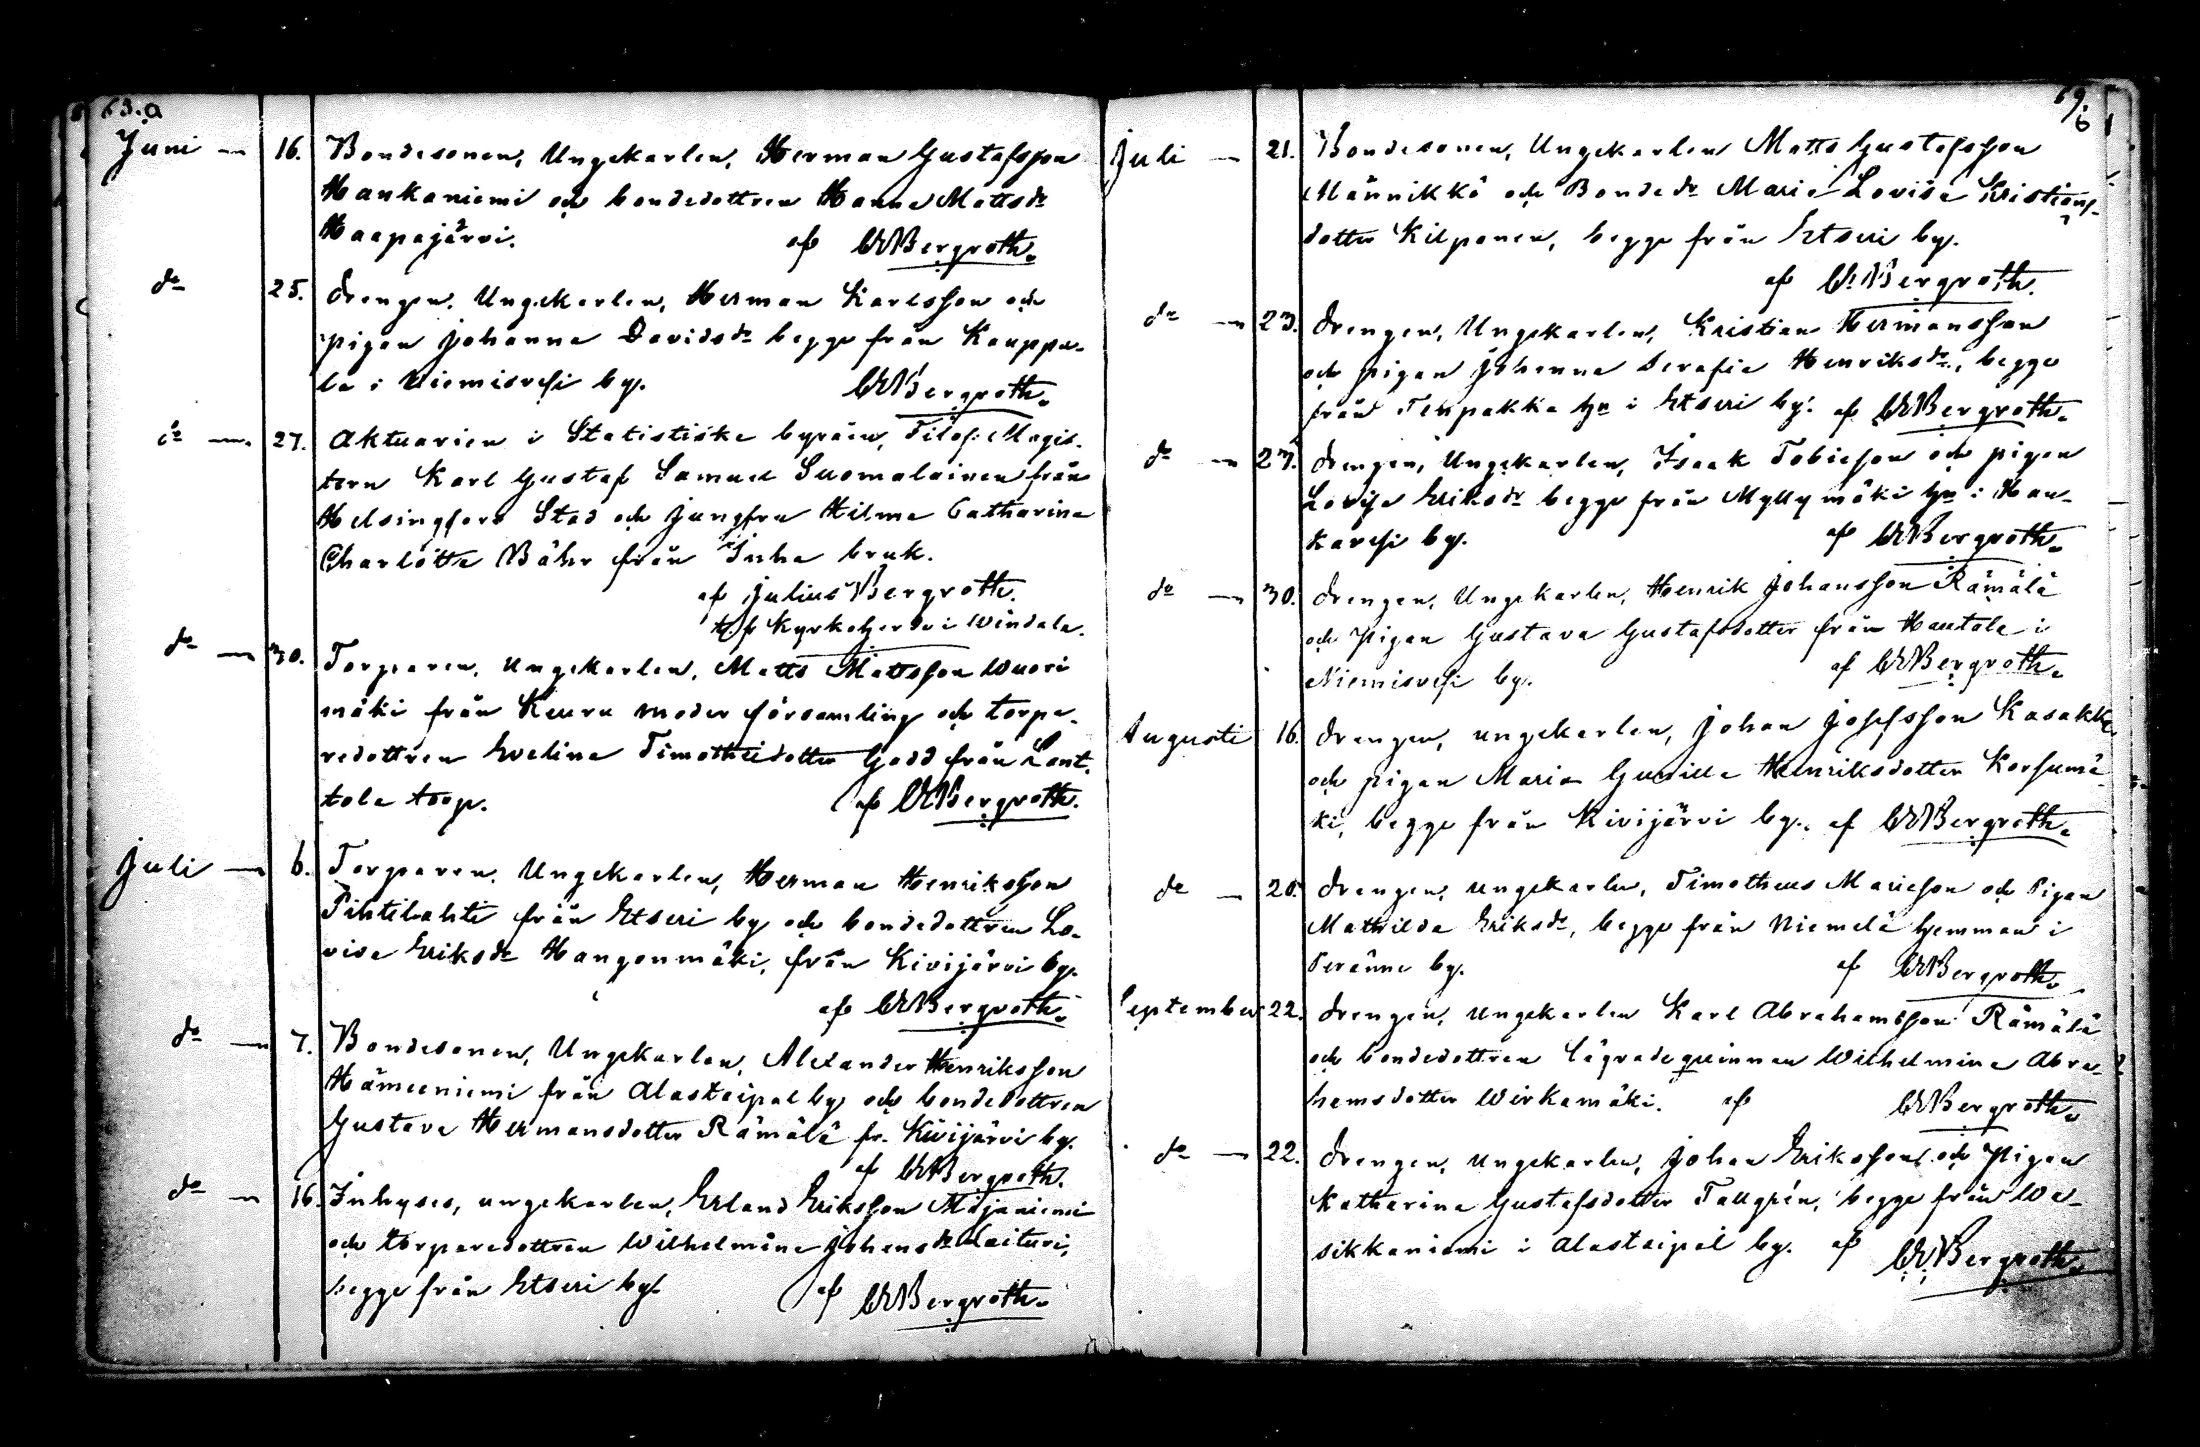 63.a
Juni — 16. Bondesonen, Ungekarlen, Herman Gustafsson
Hankaniemi och bondedottren Hanna Mattsdr
Haapajärvi. af CWBergroth.
do 25. Drengen, Ungekarlen, Herman Karlsson och
pigan Johanna Davidsdr begge från Kauppa-
la i Niemisvesi by. CWBergroth.
do — 27. Aktuarien i Statistiska byrån, Filos. Magis-
tern Karl Gustaf Samuel Suomalainen från
Helsingfors Stad och Jungfru Hilma Catharina
Charlotta Bähr från Inha bruk.
af Julius Bergroth.
t.f. Kyrkoherde i Windala.
do — 30. Torparen, Ungekarlen, Matts Mattsson Wuori
mäki från Keuru moder församling och torpa-
redottren Evelina Timotheidotter Gadd från Lant-
tola torp. af CWBergroth.
Juli — 6. Torparen, Ungekarlen, Herman Henriksson
Pihtilahti från Etseri by och bondedottren Lo-
visa Eriksdr Hangonmäki, från Kivijärvi by.
af CWBergroth.
do — 7. Bondesonen, Ungekarlen, Alexander Henriksson
Hämeeniemi från Alastaipal by och bondedottren
Gustava Hermansdotter Rämälä fr. Kivijärvi by.
af CWBergroth.
do — 16. Inhyses, ungekarlen, Erland Eriksson Majaniemi
och torparedottren Wilhelmina Johansdr Laituri,
begge från Etseri by. af CWBergroth.
69.
6
Juli — 21. Bondesonen, Ungekarlen Matts Gustafsson
Männikkö och Bondedr Maria Lovisa Kristians-
dotter Kilponen, begge från Etseri by.
af CWBergroth.
do — 23. Drengen, Ungekarlen, Kristian Hermansson
och pigan Johanna Serafia Henriksdr, begge
från Tehpakka hn i Etseri by. af CWBergroth.
do — 27. Drengen, Ungekarlen, Isaak Tobiesson och pigan
Lovisa Eriksdr begge från Myllymäki hn i Han-
kavesi by. af CWBergroth.
do — 30. Drengen, Ungekarlen, Henrik Johansson Rämälä
och Pigan Gustava Gustafsdotter från Hautala i
Niemisvesi by. af CWBergroth.
Augusti 16. Drengen, ungekarlen, Johan Josefsson Kasakka
och pigan Maria Gunilla Henriksdotter Korsumä-
ki, begge från Kivijärvi by. af CWBergroth.
do — 20. Drengen, ungekarlen, Timotheus Mariesson och Pigan
Mathilda Eriksdr, begge från Niemelä hemman i
Peränne by. af CWBergroth.
September 22. Drengen, ungekarlen Karl Abrahamsson Rämälä
och bondedottren lägrade qvinnan Wilhelmina Abra-
hamsdotter Wirkamäki. af CWBergroth.
do — 22. Drengen, ungekarlen, Johan Eriksson och Pigan
Katharina Gustafsdotter Tallgrén, begge från Wa-
sikkaniemi i Alastaipal by. af CWBergroth.